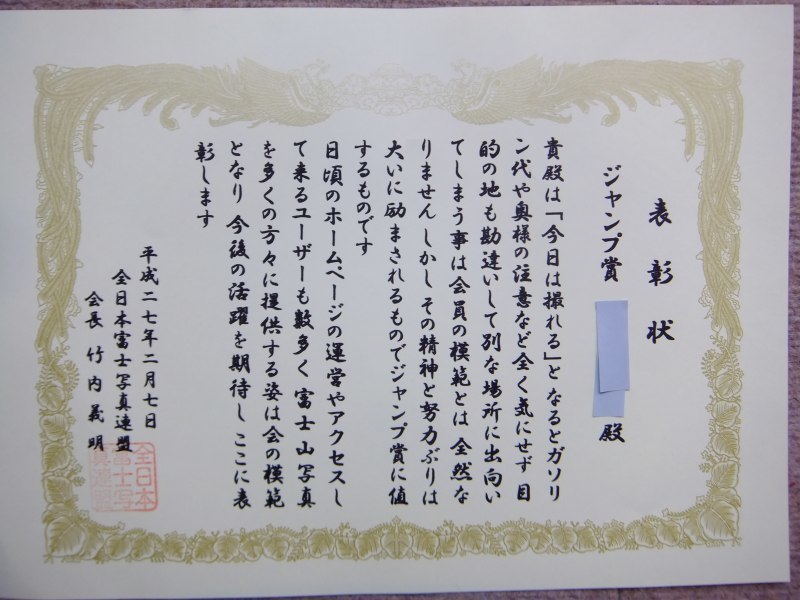 表彰状
ジャンプ賞 殿
貴殿は「今日は撮れる」となるとガソリ
ン代や奥様の注意など全く気にせず 目
的の地も勘違いして別な場所に出向い
てしまう事は会員の模範とは 全然な
りません しかし その精神と努力ぶりは
大いに励まされるものでジャンプ賞に値
するものです
日頃のホームページの運営やアクセスし
て来るユーザーも数多く 富士山写真
を多くの方々に提供する姿は会の模範
となり 今後の活躍を期待し ここに表
彰します
平成二七年二月七日
全日本富士写真連盟
会長 竹内義明
全日本
富士写
真連盟